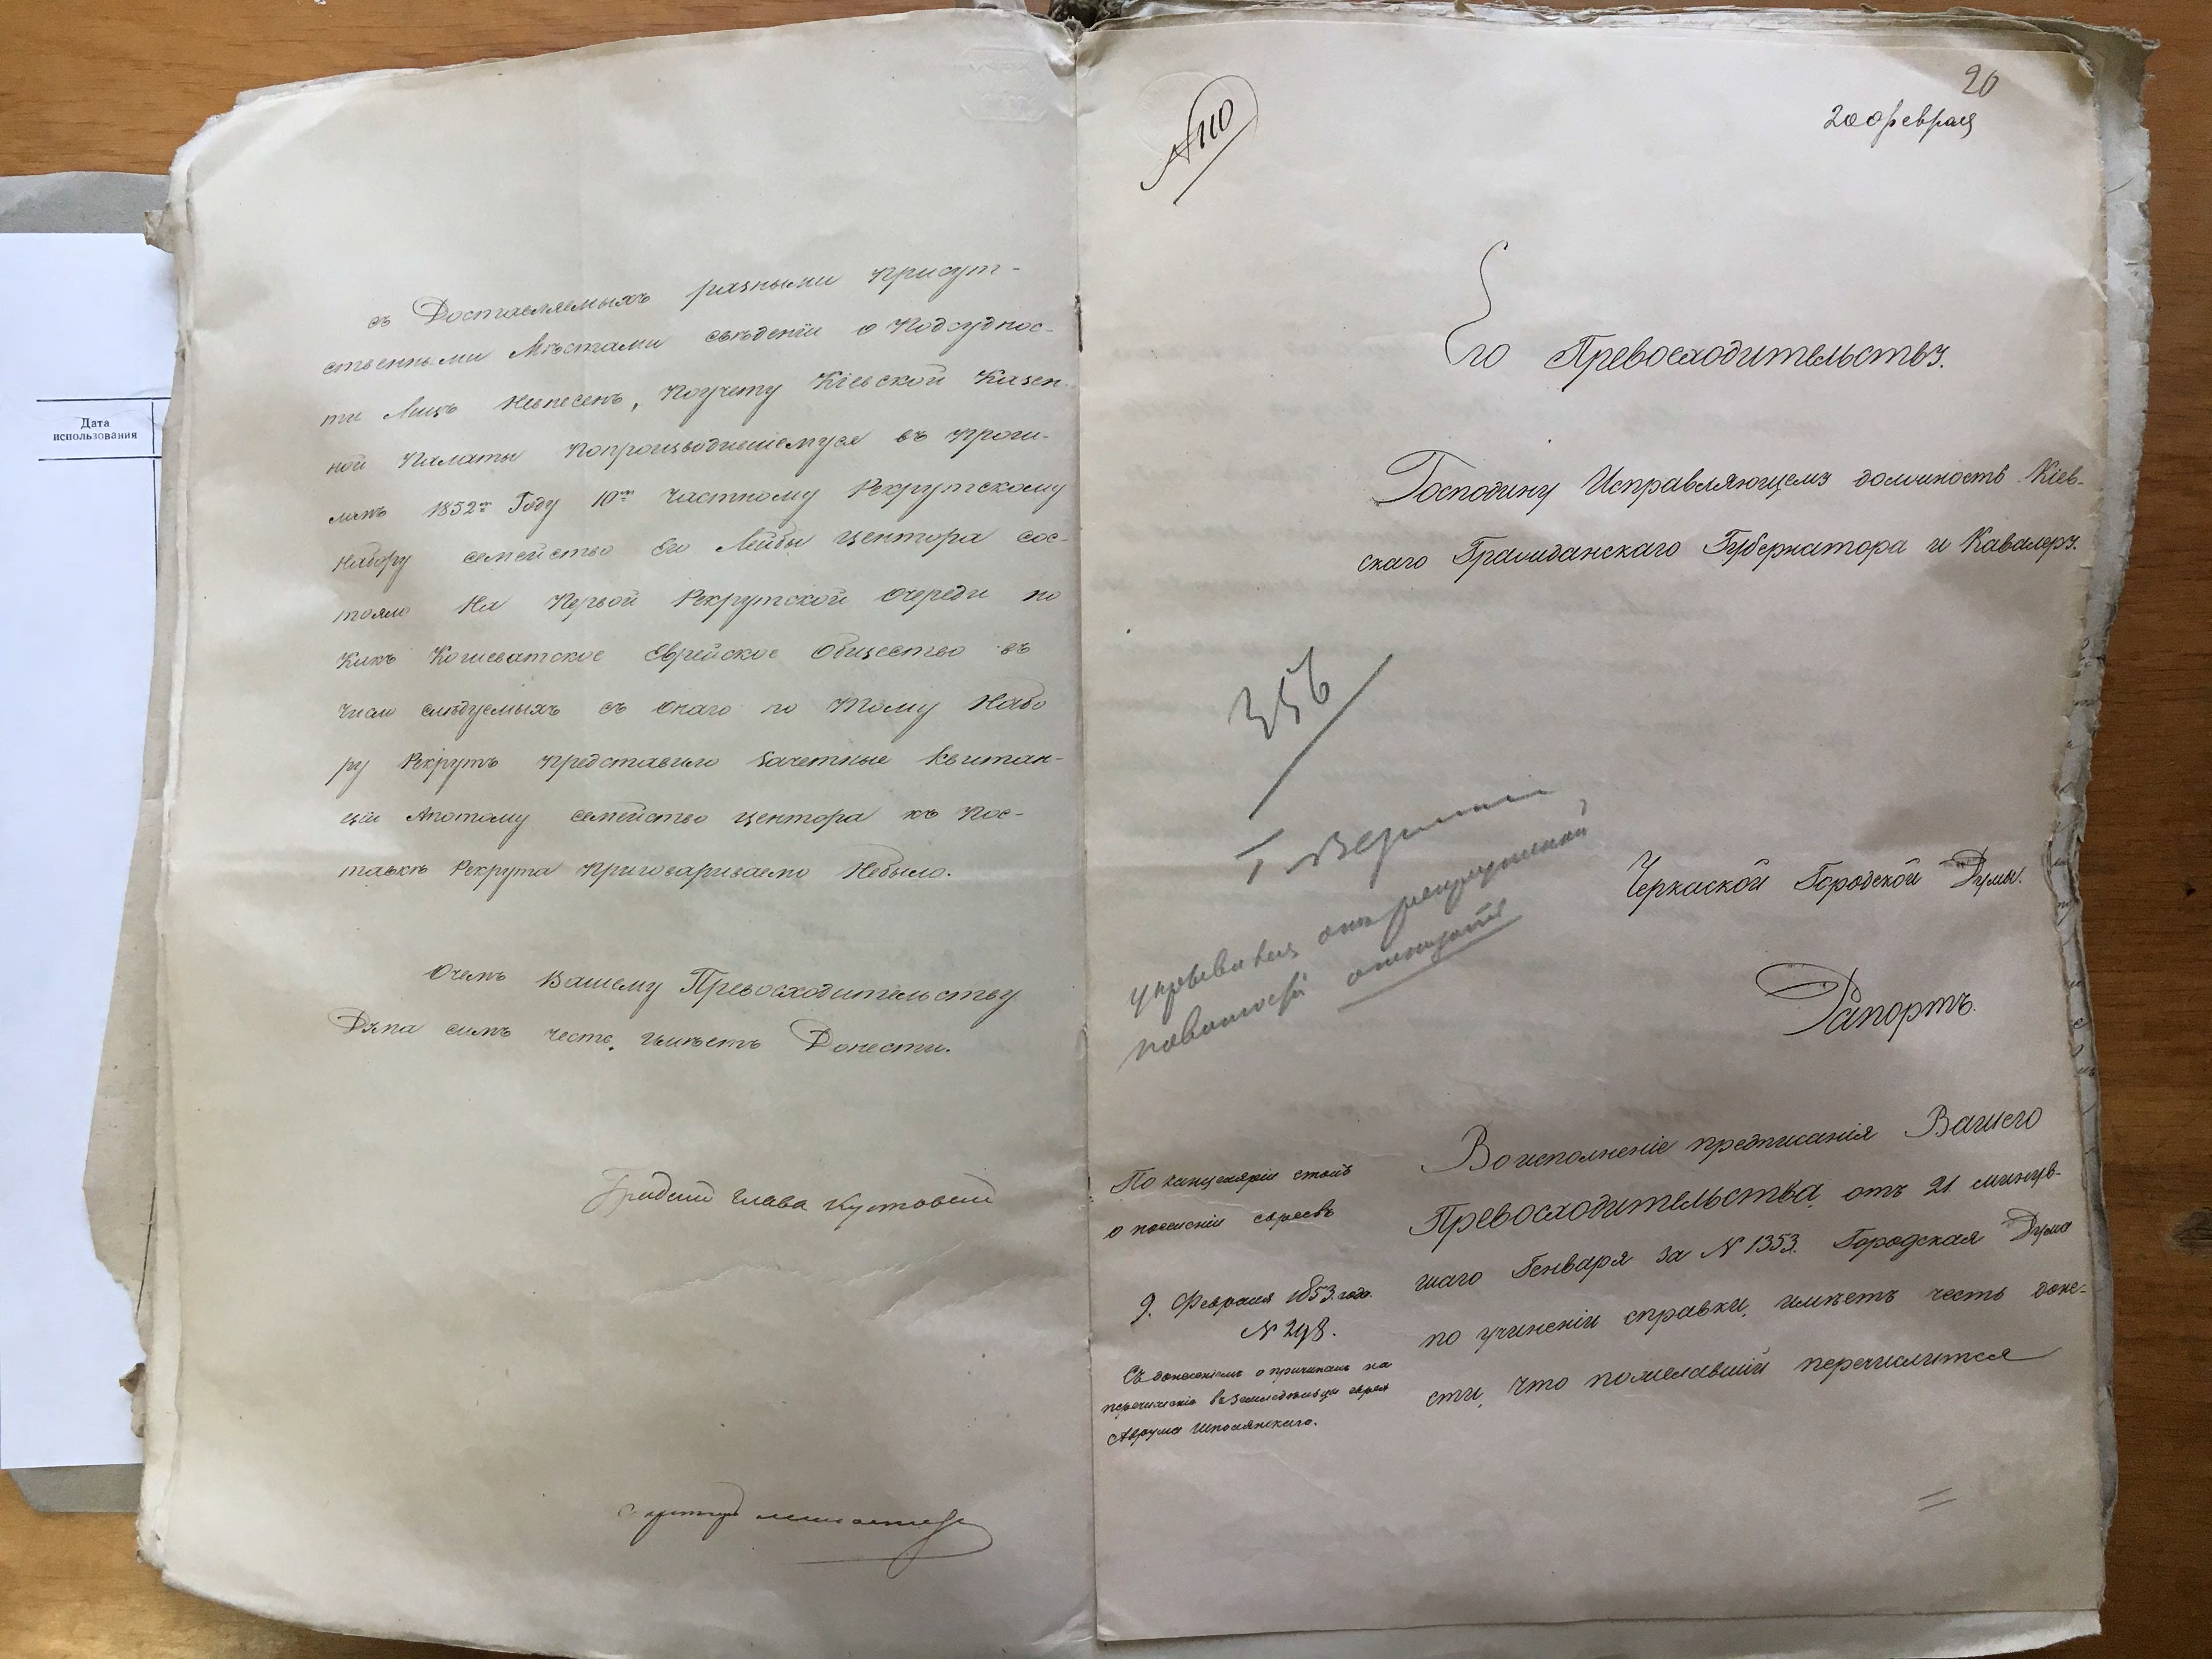 Дата
использования
съ Доставляемыхъ разными Присут-
ственными Мѣстами свѣденіи о Подсуднос-
ти Лицъ Невнесенъ, Поучету Кіевской Казен-
ной Палаты Попроизводившемуся въ Прош-
ломъ 1852мъ Году 10му Частному Рекрутскому
Набору семейство Его Лейбы Центора сос-
тояло На Первой Рекрутской Очереди но
Какъ Кошеватское Еврейское Общество въ
Число слѣдуемыхъ съ Онаго по Тому Набо
ру Рекрутъ Представило Зачетные Квитан-
ціи Апотому семейство Центора къ Пос-
тавкѣ Рекрута Приговариваемо Небыло.
Очемъ Вашему Превосходительству
Дума симъ честь имѣетъ Донести.
Градскій Глава Кутовый
20
20 февраля
№110
Его Превосходительству.
Господину Исправляющему должность Кіев-
скаго Гражданскаго Губернатора и Кавалеру.
356
укрывался отъ рекрутской
повинности
Черкаской Городской Думы.
Рапортъ.
По канцеляріи столъ
о поселеніи евреевъ
9. Февраля 1853. года.
№ 298.
Съ донесеніемъ о причинахъ на
перечисленіе въ Земледѣльцы еврея
Аврума Шполянскаго.
Воисполненіе предписанія Вашего
Превосходительства, отъ 21 минув-
шаго Генваря за № 1353. Городская Дума
по учиненіи справки, имѣетъ честь доне-
сти, что пожелавшій перечислится